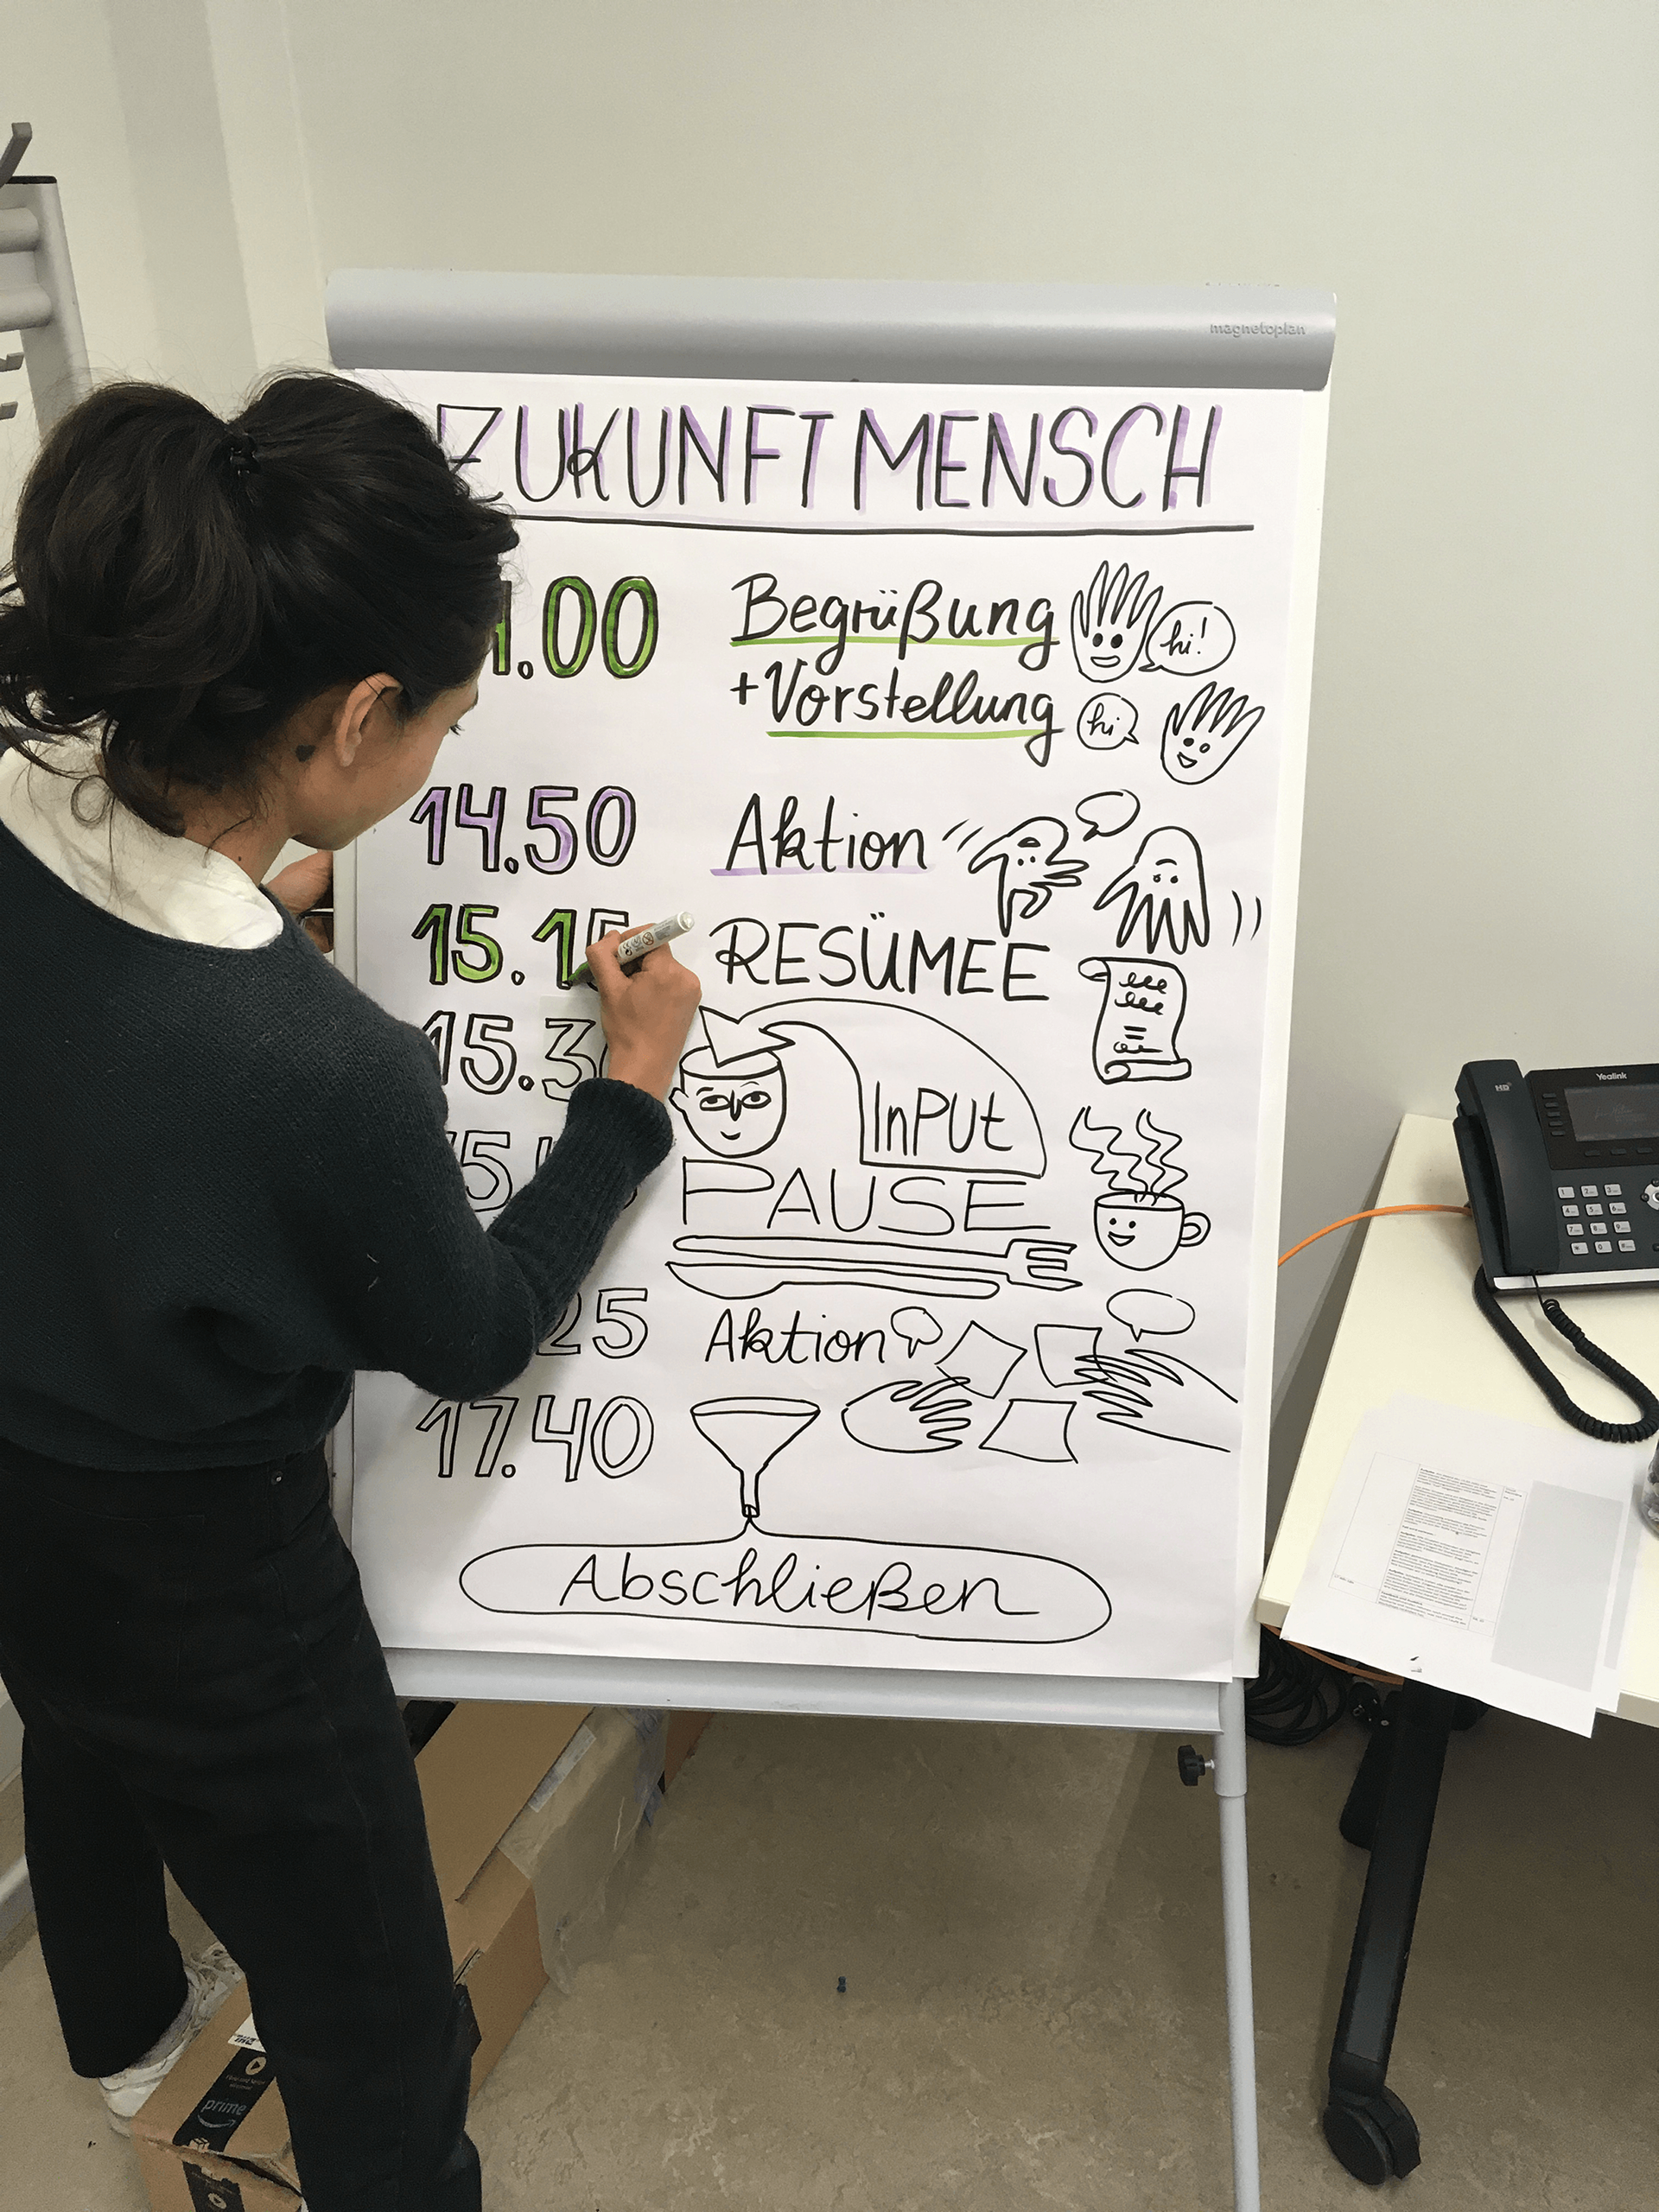 magnetoplan
ZUKUNFT MENSCH
.00 Begrüßung hi!
+ Vorstellung hi
14.50 Aktion
15.15 RESÜMEE
15.3
InPUt
PAUSE
25 Aktion
17.40
Abschließen
Yealink
HD
prime